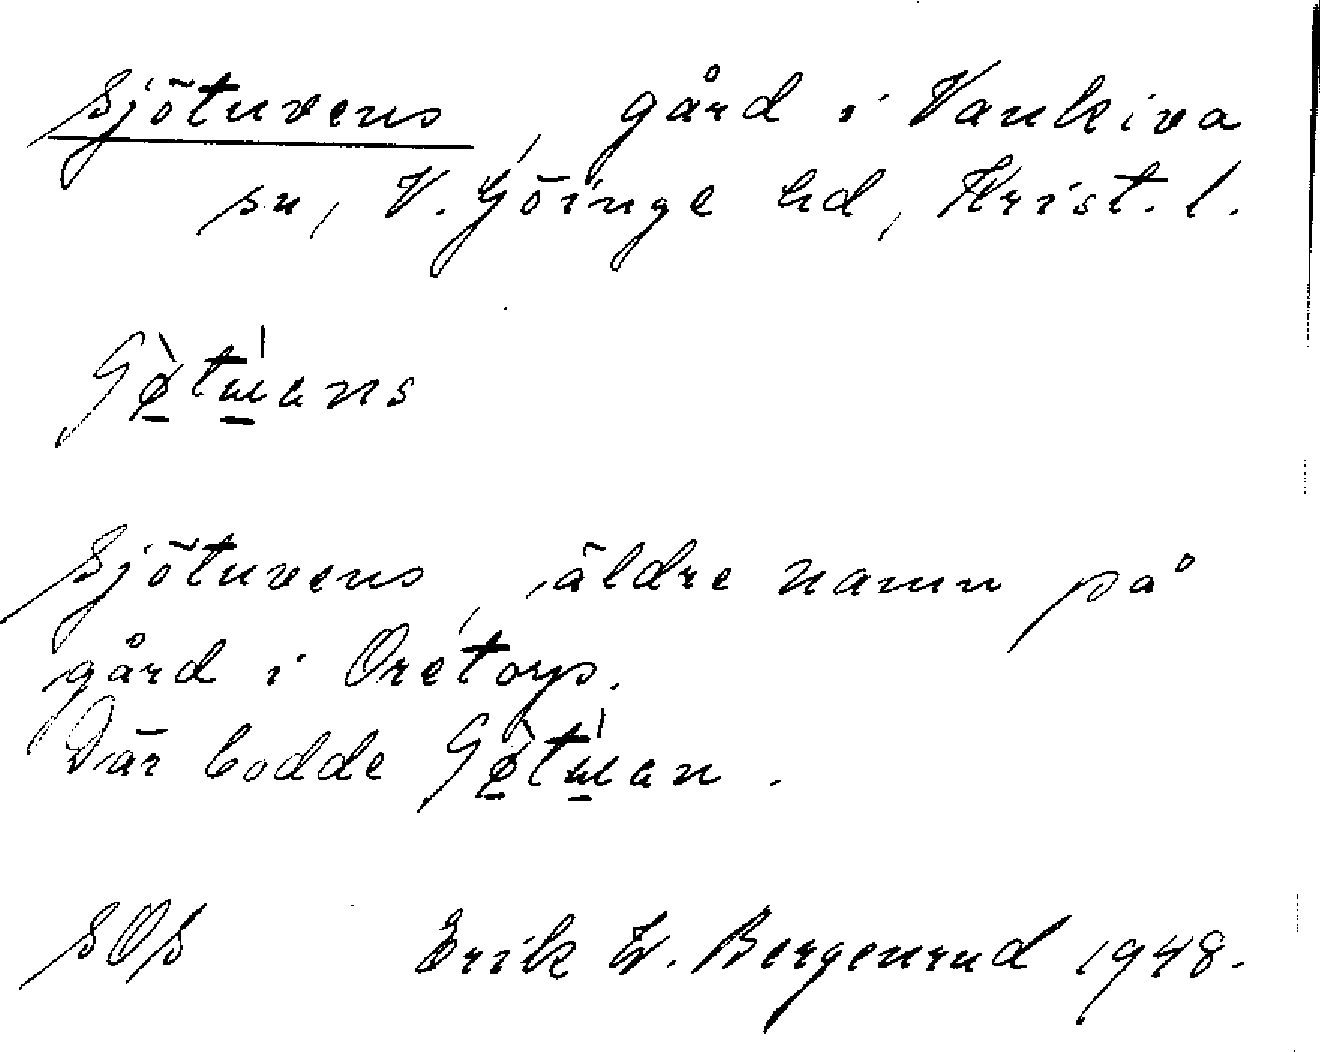 Sjötuvens, gård i Vankiva
sn, V. Göinge hd, Krist. l.
Gø̀tmans
Sjötuvens, äldre namn på
gård i Oretorp.
Där bodde Gø̀tman.
SOS Erik W. Bergenrud 1948.